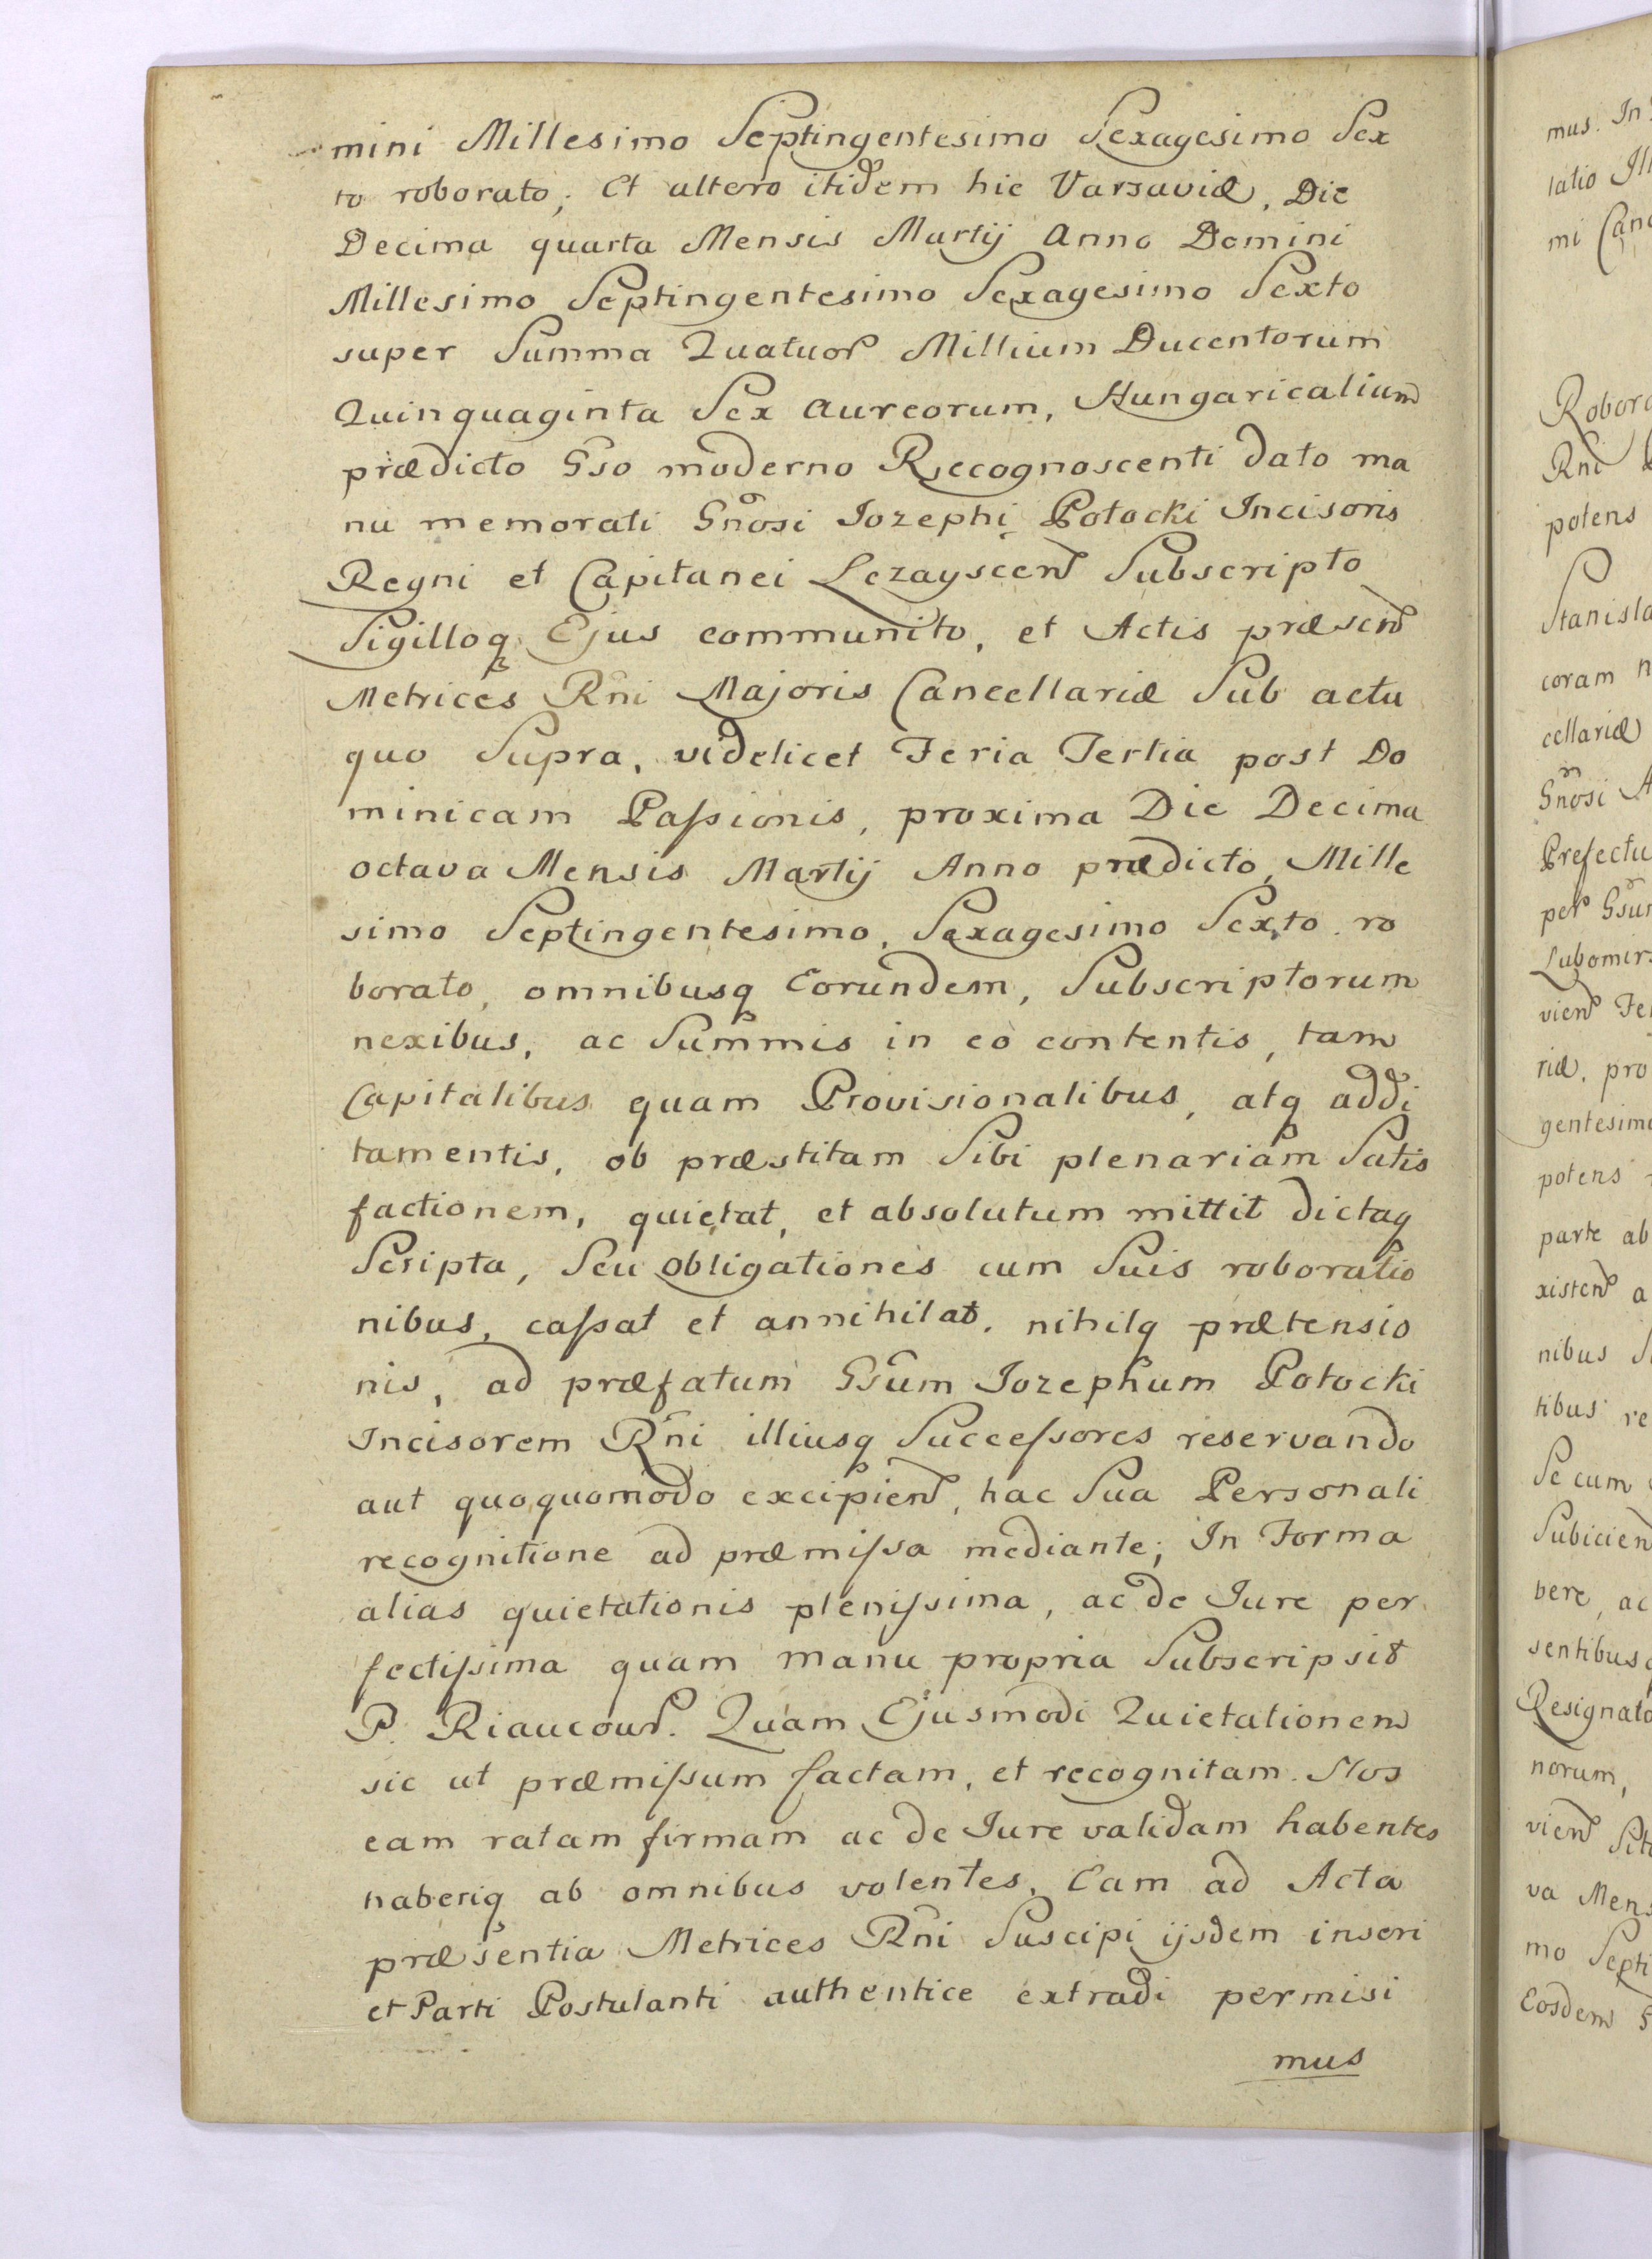 mini Millesimo Septingentesimo Sexagesimo Sex
to roborato; Et altero itidem hic Varsaviæ, Die
Decima quarta Mensis Martij Anno Domini
Millesimo Septingentesimo Sexagesimo Sexto
super Summa Quatuor Millium Ducentorum
Quinquaginta Sex Aureorum, Hungaricalium
prædicto Gso moderno Recognoscenti dato ma
nu memorati Gnosi Jozephi Potocki Incisoris
Regni et Capitanei Lezayscen Subscripto
Sigilloq Ejus communito, et Actis præsen
Metrices Rni Majoris Cancellariæ Sub actu
quo Supra, videlicet Feria Tertia post Do
minicam Paſsionis, proxima Die Decima
octava Mensis Martij Anno prædicto, Mille
simo Septingentesimo, Sexagesimo Sexto ro
borato, omnibusq Eorundem, Subscriptorum
nexibus, ac Summis in eo contentis, tam
Capitalibus quam Provisionalibus, atq addi
tamentis, ob præstitam Sibi plenariam Satis
factionem, quietat, et absolutum mittit dictaq
Scripta, Seu obligationes cum Suis roboratio
nibus, caſsat et annihilat, nihilq prætensio
nis, ad præfatum Gsum Jozephum Potocki
Incisorem Rni illiusq Succeſsores reservando
aut quoquomodo excipien, hac Sua Personali
recognitione ad præmiſsa mediante; In Forma
alias quietationis pleniſsima, ac de Jure per
fectiſsima quam manu propria Subscripsit
P. Riaucour. Quam Ejusmodi Quietationem
sic ut præmiſsum factam, et recognitam. Nos
eam ratam firmam ac de Jure validam habentes
haberiq ab omnibus volentes, Eam ad Acta
præsentia Metrices Rni Suscipi ijsdem inseri
et Parti Postulanti authentice extradi permisi
mus
mus. In
latio
mi
Rni
potens
coram
cellariæ
Gnosi
Prefectu
per
vien
riæ, pro
gentesimo
potens
parte ab
xisten a
nibus
tibus re
Se cum
Subicien
bere, ac
sentibus
Resignato
norum,
vien
va Mens
mo Septi
Eosdem